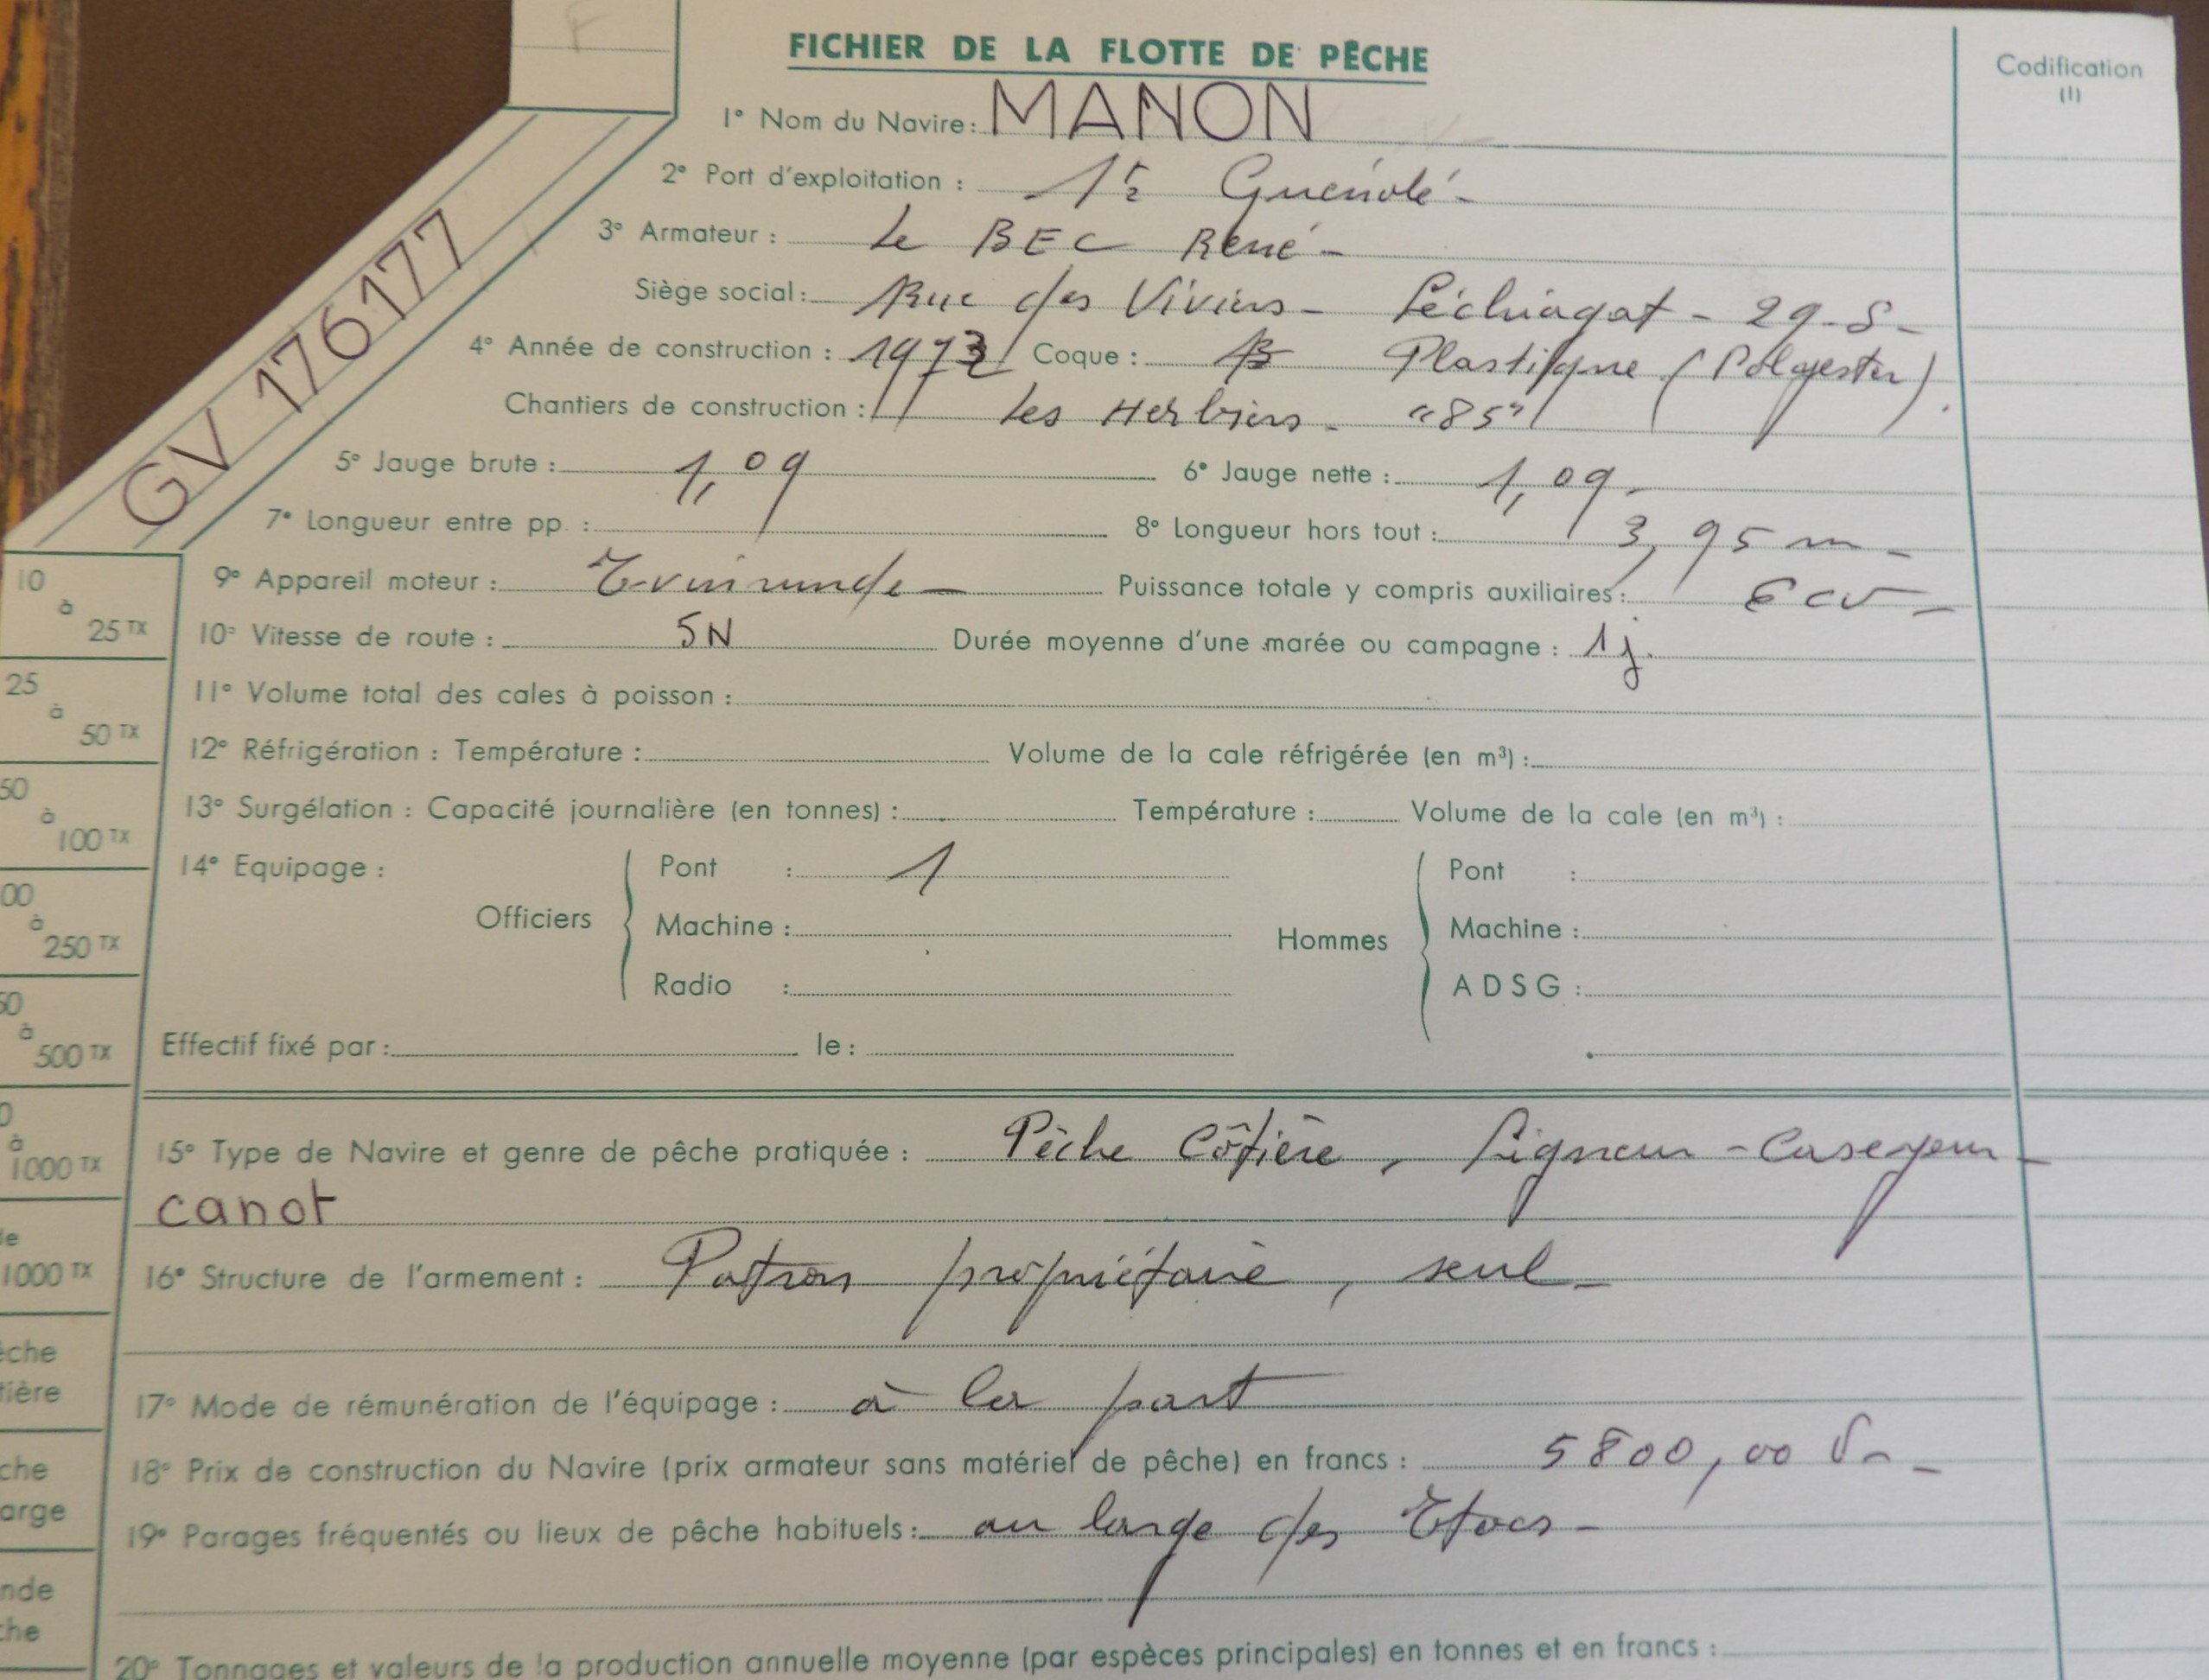 F
FICHIER DE LA FLOTTE DE PÊCHE
Codification
(1)
1° Nom du Navire : MANON
2° Port d'exploitation : Guénolé -
3° Armateur : Le BEC René -
Siège social : Rue des Viviers - Léchiagat - 29-S -
4° Année de construction : 1973 Coque : Plastique (Polyester).
Chantiers de construction : Les Herbiers - "85"
GV 176177
5° Jauge brute : 1,09 6° Jauge nette : 1,09 -
7° Longueur entre pp. : 8° Longueur hors tout : 3,95 m -
9° Appareil moteur : Evinrude - Puissance totale y compris auxiliaires : 6 cv -
10° Vitesse de route : 5N Durée moyenne d'une marée ou campagne : 1j.
11° Volume total des cales à poisson :
12° Réfrigération : Température : Volume de la cale réfrigérée (en m³) :
13° Surgélation : Capacité journalière (en tonnes) : Température : Volume de la cale (en m³) :
14° Equipage :
Officiers
Pont : 1
Machine :
Radio :
Hommes
Pont :
Machine :
ADSG :
Effectif fixé par : le :
15° Type de Navire et genre de pêche pratiquée : Pêche Côtière, Ligneur - Caseyeur -
canot
16° Structure de l'armement : Patron propriétaire, seul -
17° Mode de rémunération de l'équipage : à la part
18° Prix de construction du Navire (prix armateur sans matériel de pêche) en francs : 5800,00
19° Parages fréquentés ou lieux de pêche habituels : au large des Etocs -
20° Tonnages et valeurs de la production annuelle moyenne (par espèces principales) en tonnes et en francs :
10
à
25 TX
25
à
50 TX
50
à
100 TX
00
à
250 TX
50
à
500 TX
0
à
1000 TX
e
1000 TX
êche
tière
che
arge
nde
che